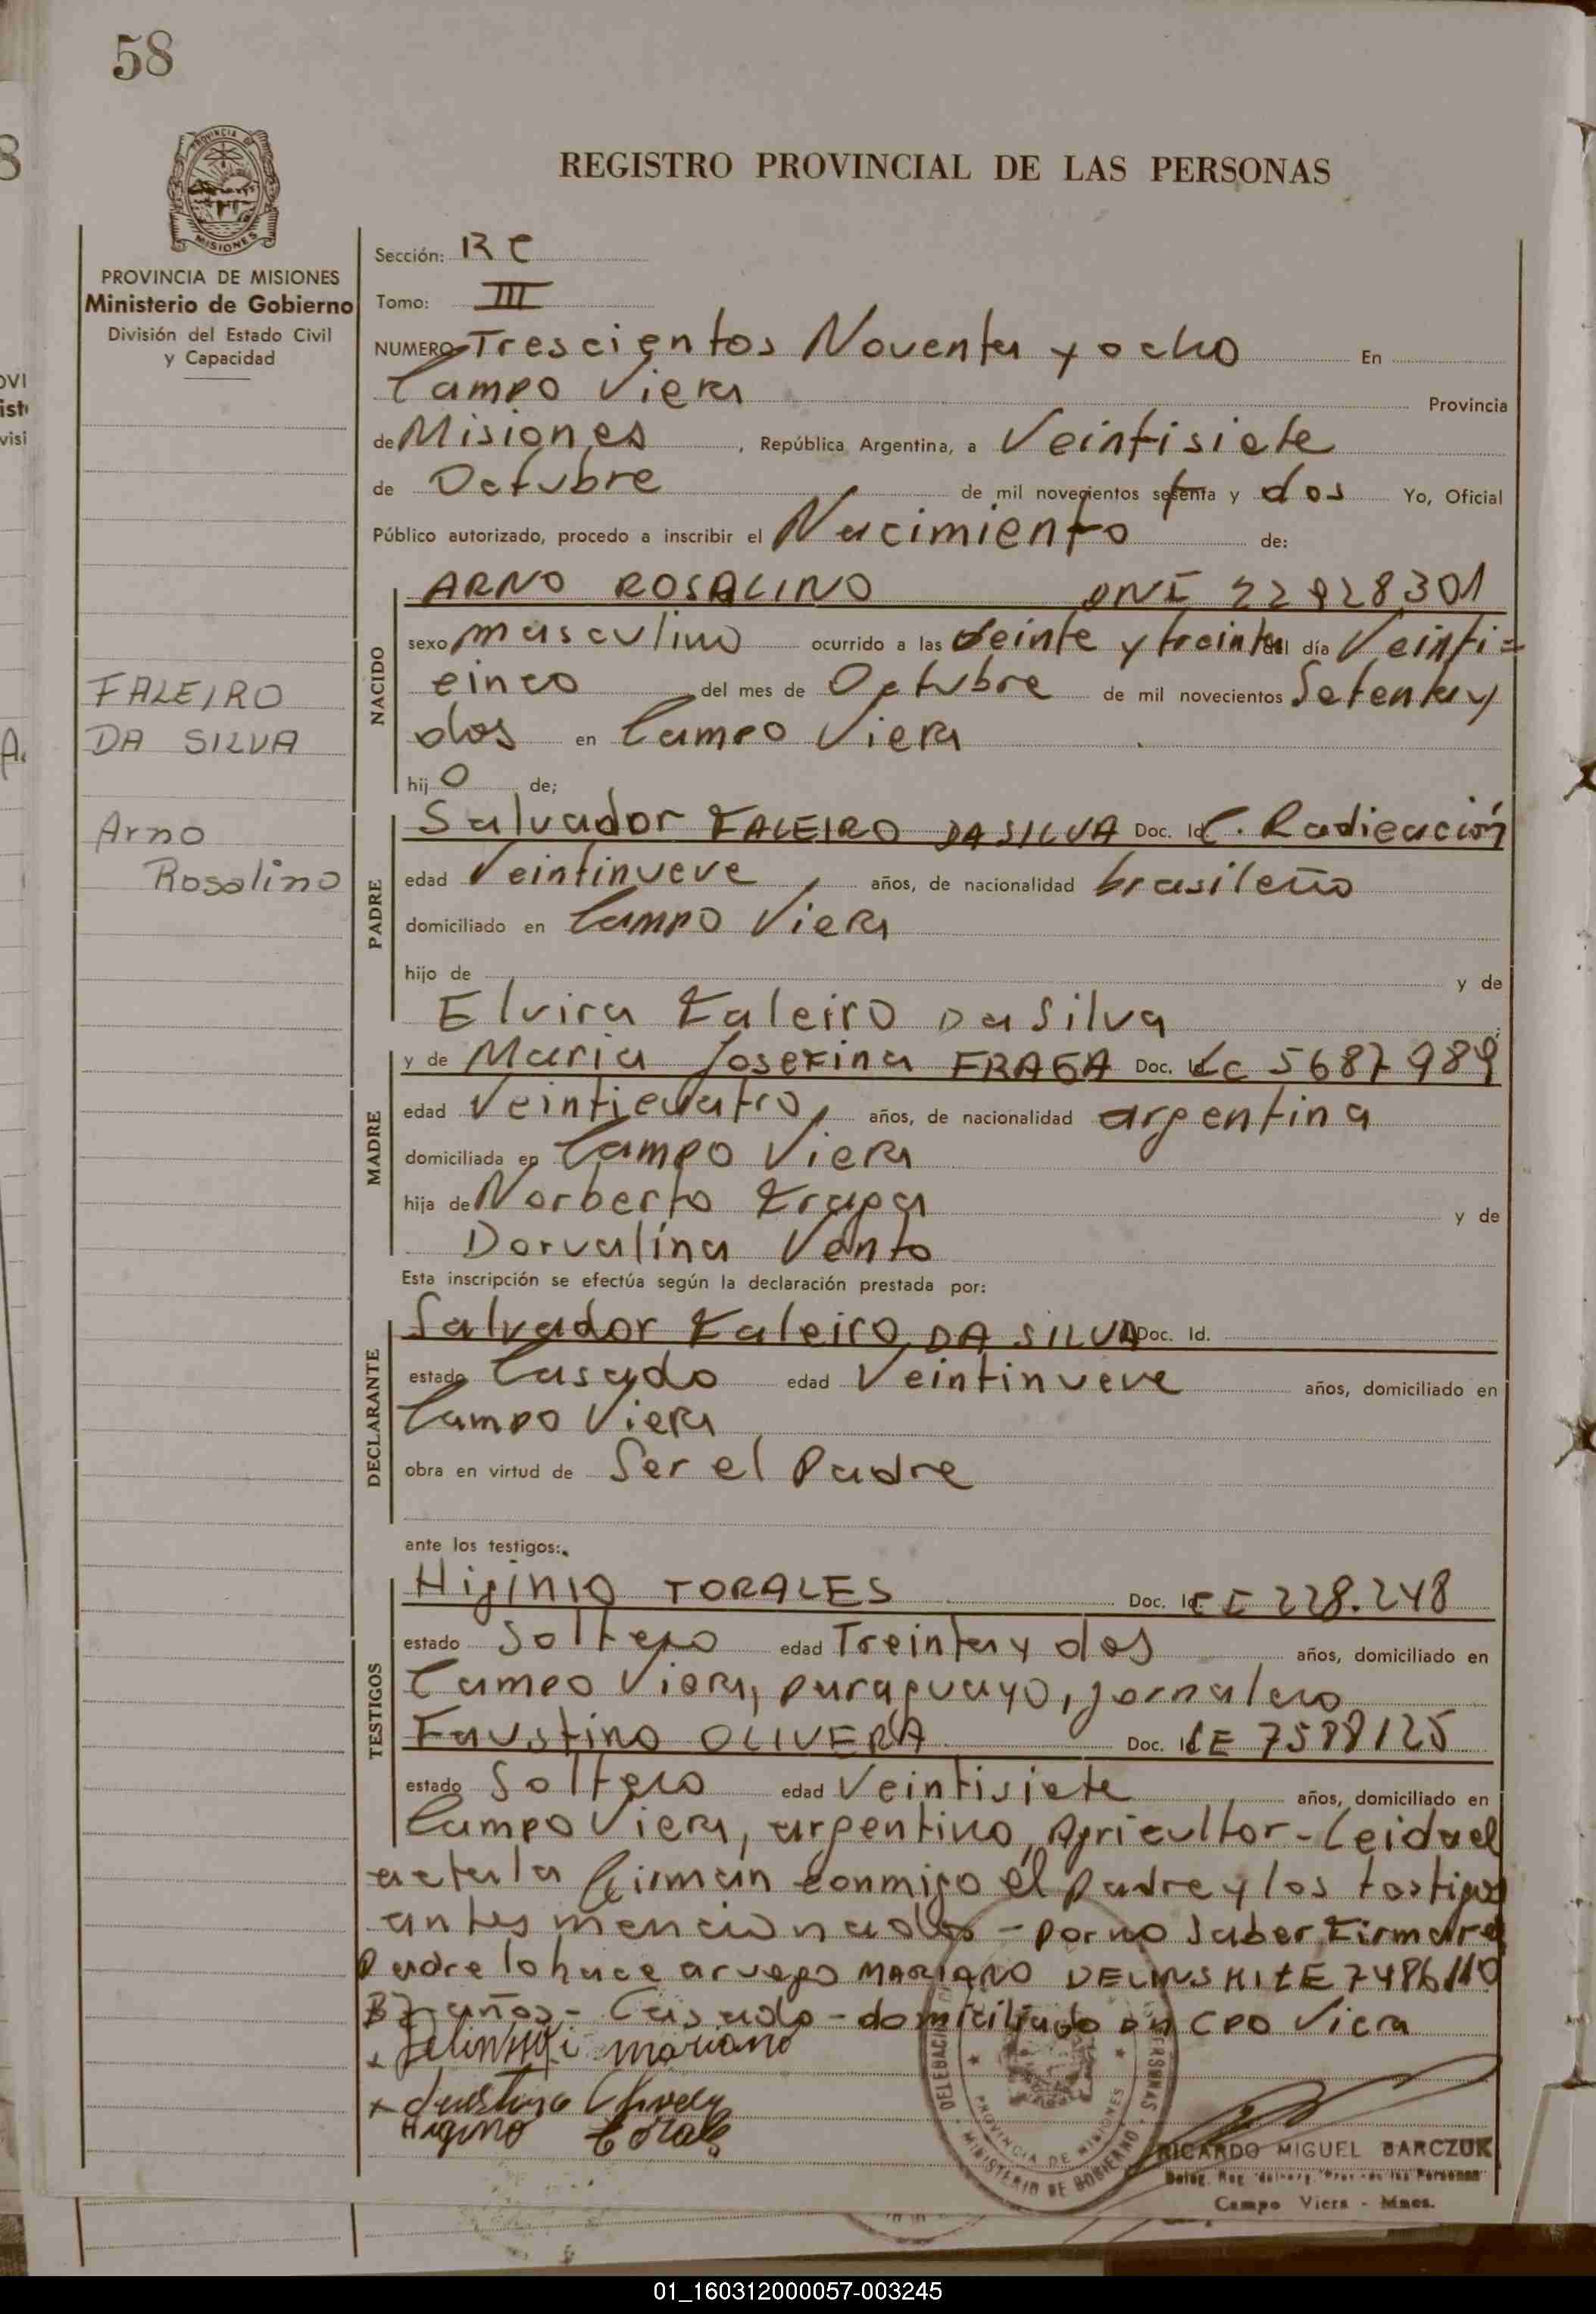 58
REGISTRO PROVINCIAL DE LAS PERSONAS
PROVINCIA DE MISIONES
Ministerio de Gobierno
División del Estado Civil
y Capacidad
FALEIRO
DA SILVA
Arno
Rosalino
Sección: RC
Tomo: III
NUMERO Trescientos Noventa y ocho En
Campo Viera Provincia
de Misiones, República Argentina, a Veintisiete
de Octubre de mil novecientos setenta y dos Yo, Oficial
Público autorizado, procedo a inscribir el Nacimiento de:
NACIDO
ARNO ROSALINO DNI 22928301
sexo masculino ocurrido a las veinte y treinta del día Veinti=
cinco del mes de Octubre de mil novecientos Setenta y
dos en Campo Viera
hijo de;
PADRE
Salvador FALEIRO DA SILVA Doc. Id. C. Radicación
edad Veintinueve años, de nacionalidad brasileño
domiciliado en Campo Viera
hijo de y de
Elvira Faleiro Da Silva
MADRE
y de Maria Josefina FRAGA Doc. Id. LC 5687989
edad Veinticuatro, años, de nacionalidad argentina
domiciliada en Campo Viera
hija de Norberto Fraga y de
Dorvalina Vento
Esta inscripción se efectúa según la declaración prestada por:
DECLARANTE
Salvador Faleiro DA SILVA Doc. Id.
estado Casado edad Veintinueve años, domiciliado en
Campo Viera
obra en virtud de Ser el Padre
ante los testigos:
TESTIGOS
Higinio TORALES Doc. Id. CI 228.248
estado Soltero edad Treinta y dos años, domiciliado en
Campo Viera, paraguayo, jornalero
Faustino OLIVERA Doc. Id. LE 7588125
estado Soltero edad Veintisiete años, domiciliado en
Campo Viera, argentino, Agricultor - Leida el
acta la firman conmigo el padre y los testigos
antes mencionados - por no saber firmar el
Padre lo hace a ruego MARIANO DELINSKI LE 7486110
37 años - Casado - domiciliado en CPO Viera
Delinski mariano
Faustino Olivera
Higinio Torales
PROVINCIA DE MISIONES
MINISTERIO DE GOBIERNO
RICARDO MIGUEL BARCZUK
Campo Viera - Mnes.
01_160312000057-003245